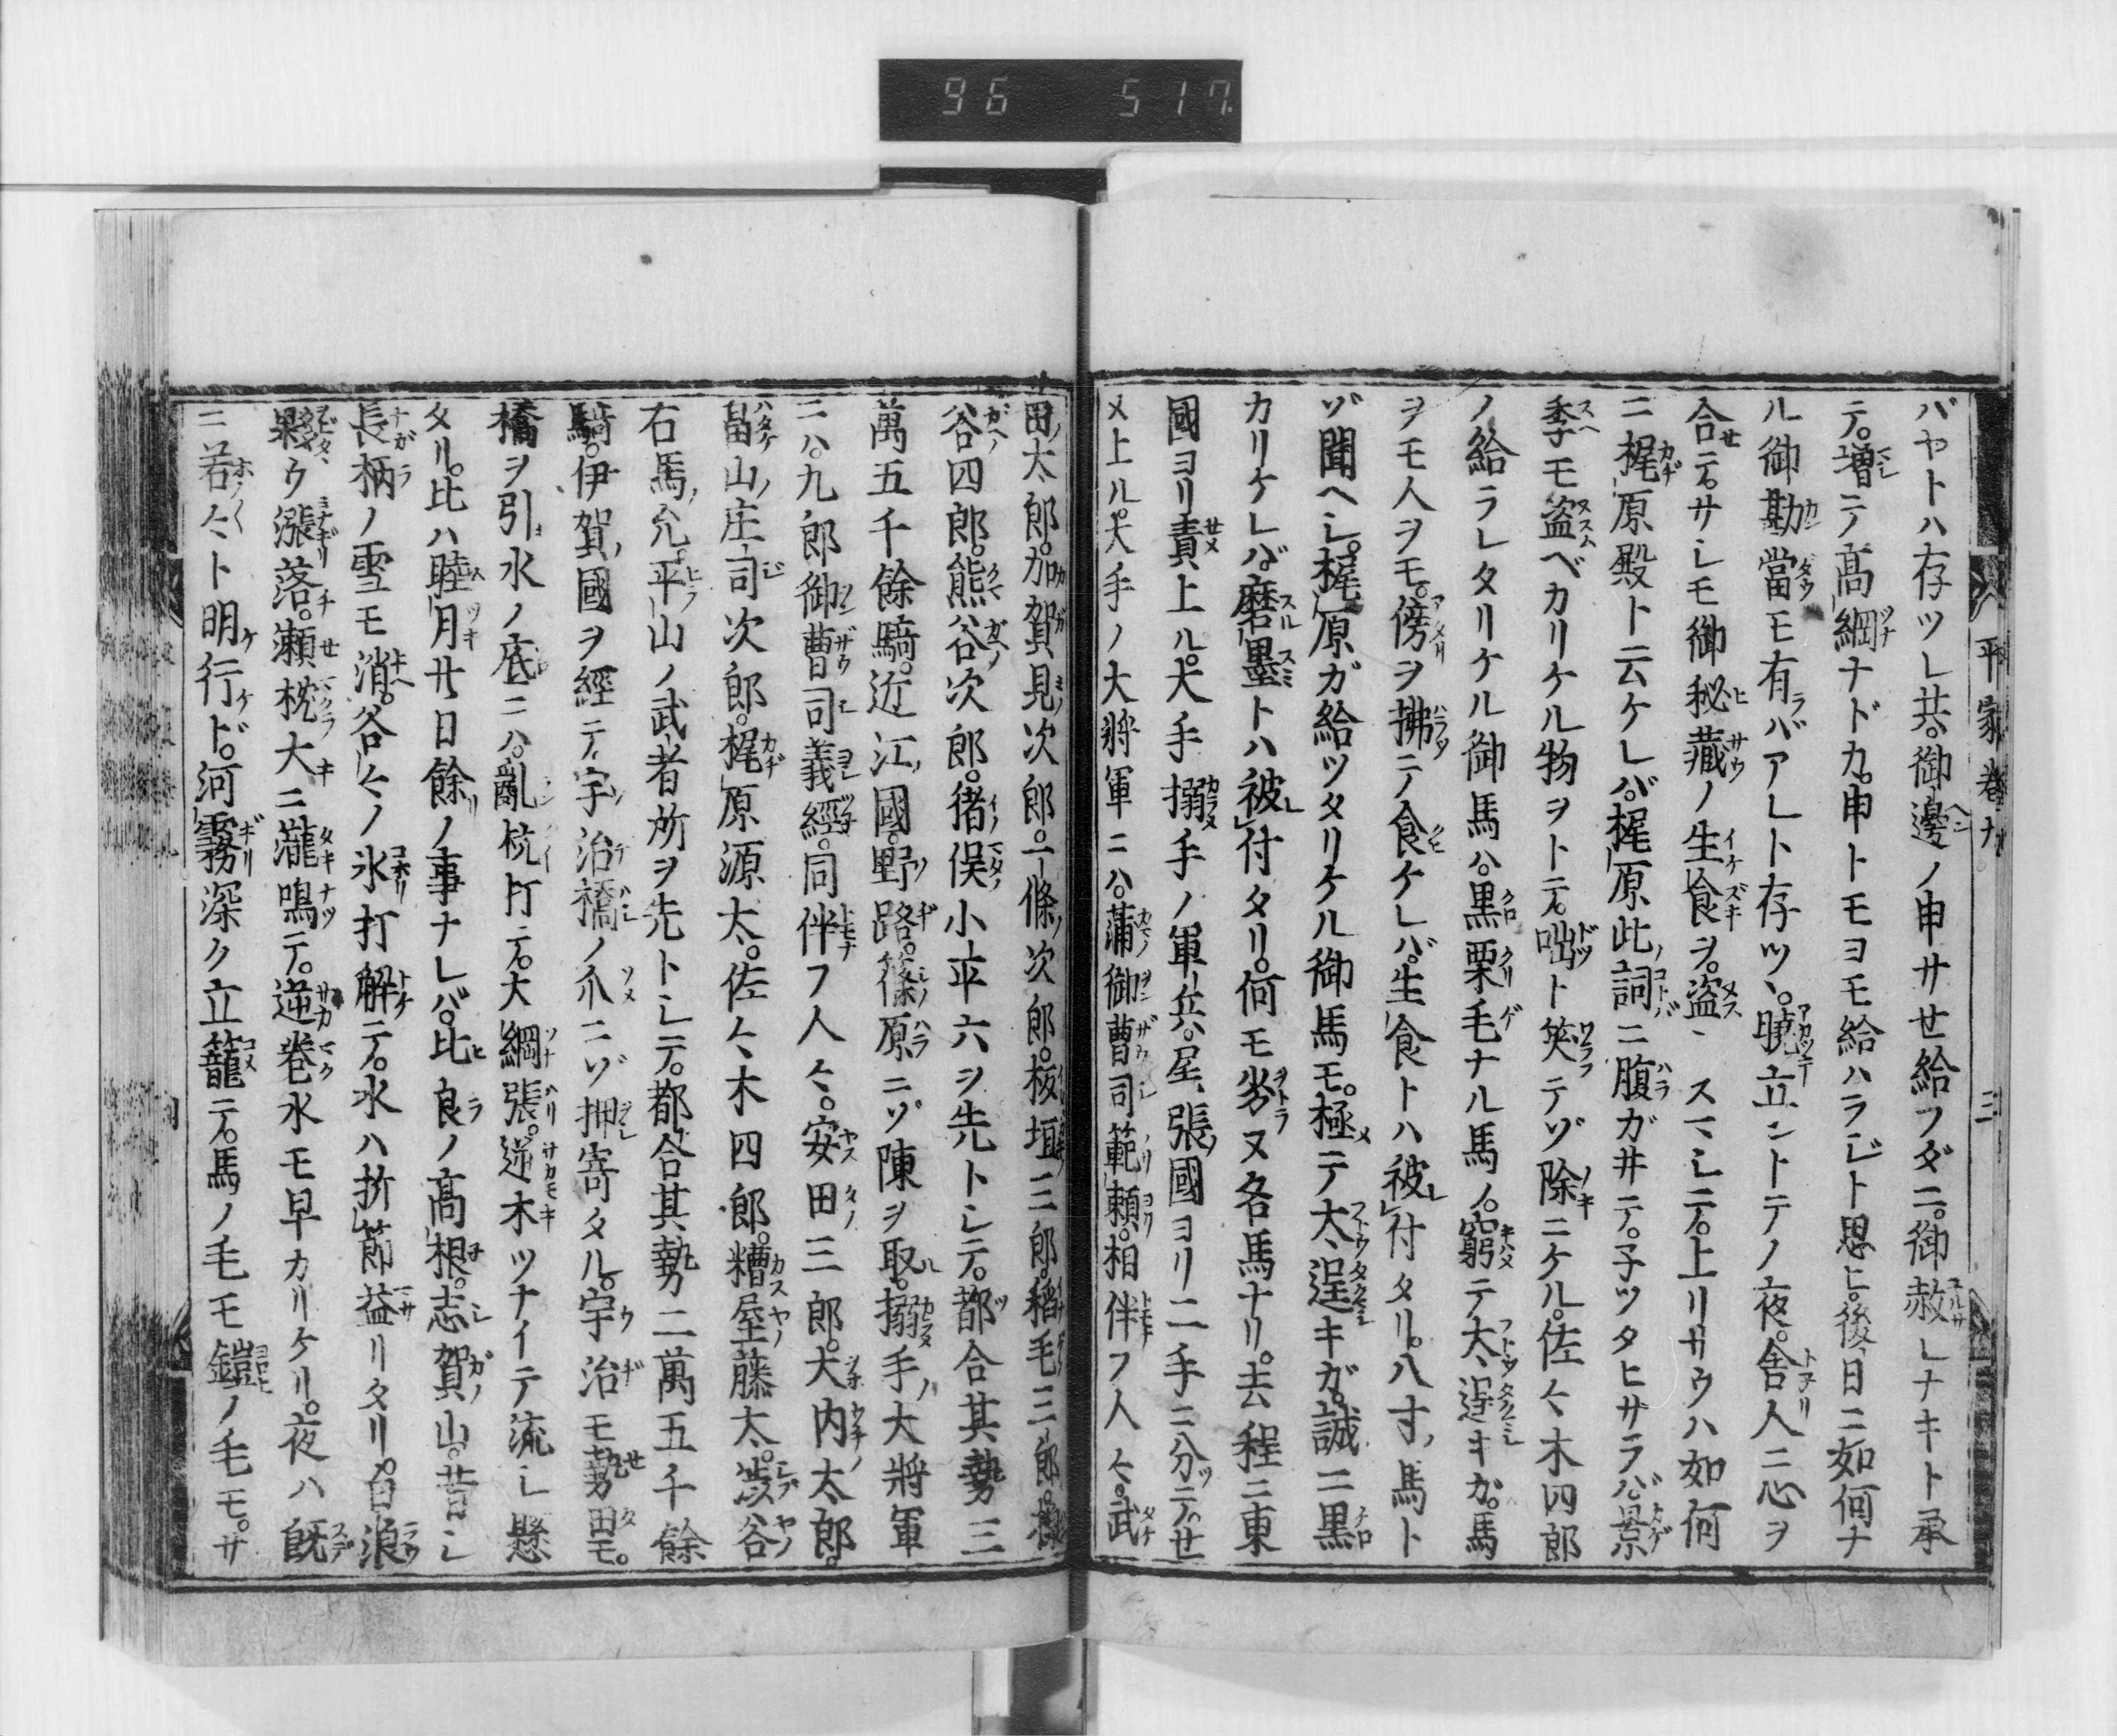 96 517
平家巻九 三
バヤトハ存ツレ共。御邊ノ申サセ給フダニ。御赦レナキト承
テ。増テ髙綱ナドカ。申トモヨモ給ハラジト思ヒ。後日ニ如何ナ
ル御勘當モ有ラバアレト存ツヽ。曉立ントテノ夜。舎人ニ心ヲ
合テ。サレモ御秘藏ノ生食ヲ。盗ヽスマシテ。上リサウハ如何
ニ梶原殿ト云ケレバ。梶原此詞ニ腹ガ井テ。子ツタヒサラバ景
季モ盗ベカリケル物ヲトテ。咄ト笑テゾ除ニケル。佐々木四郎
ノ給ラレタリケル御馬ハ。黒栗毛ナル馬ノ。窮テ太逞キカ。馬
ヲモ人ヲモ。傍ヲ拂テ食ケレバ。生食トハ被付タリ。八寸ノ馬ト
ゾ聞ヘシ。梶原ガ給ツタリケル御馬モ。極テ太逞キガ。誠ニ黒
カリケレバ。磨墨トハ被付タリ。何モ劣ヌ名馬ナリ。去程ニ東
國ヨリ責上ル。大手搦手ノ軍兵。尾張國ヨリ二手ニ分テ。セ
メ上ル。大手ノ大將軍ニハ。蒲御曹司範頼。相伴フ人々。武
田太郎。加賀見次郎。一條次郎。板垣三郎。稲毛三郎。榛
谷四郎。熊谷次郎。猪俣小平六ヲ先トシテ。都合其勢三
萬五千餘騎。近江國。野路。篠原ニゾ陳ヲ取。搦手ノ大將軍
ニハ。九郎御曹司義經。同伴フ人々。安田三郎。大内太郎。
畠山庄司次郎。梶原源太。佐々木四郎。糟屋藤太。渋谷
右馬允。平山ノ武者所ヲ先トシテ。都合其勢二萬五千餘
騎。伊賀國ヲ經テ。宇治橋ノ爪ニゾ押寄タル。宇治モ勢田モ。
橋ヲ引水ノ底ニハ。亂杭打テ。大綱張。逆木ツナイテ流シ懸
タリ。比ハ睦月廿日餘ノ事ナレバ。比良ノ髙根。志賀山。昔シ
長柄ノ雪モ消。谷々ノ氷打解テ。水ハ折節益リタリ。白浪
夥ウ漲落。瀬枕大ニ瀧鳴テ。逆巻水モ早カリケリ。夜ハ既
ニ若々ト明行ド。河霧深ク立籠テ。馬ノ毛モ鎧ノ毛モ。サ